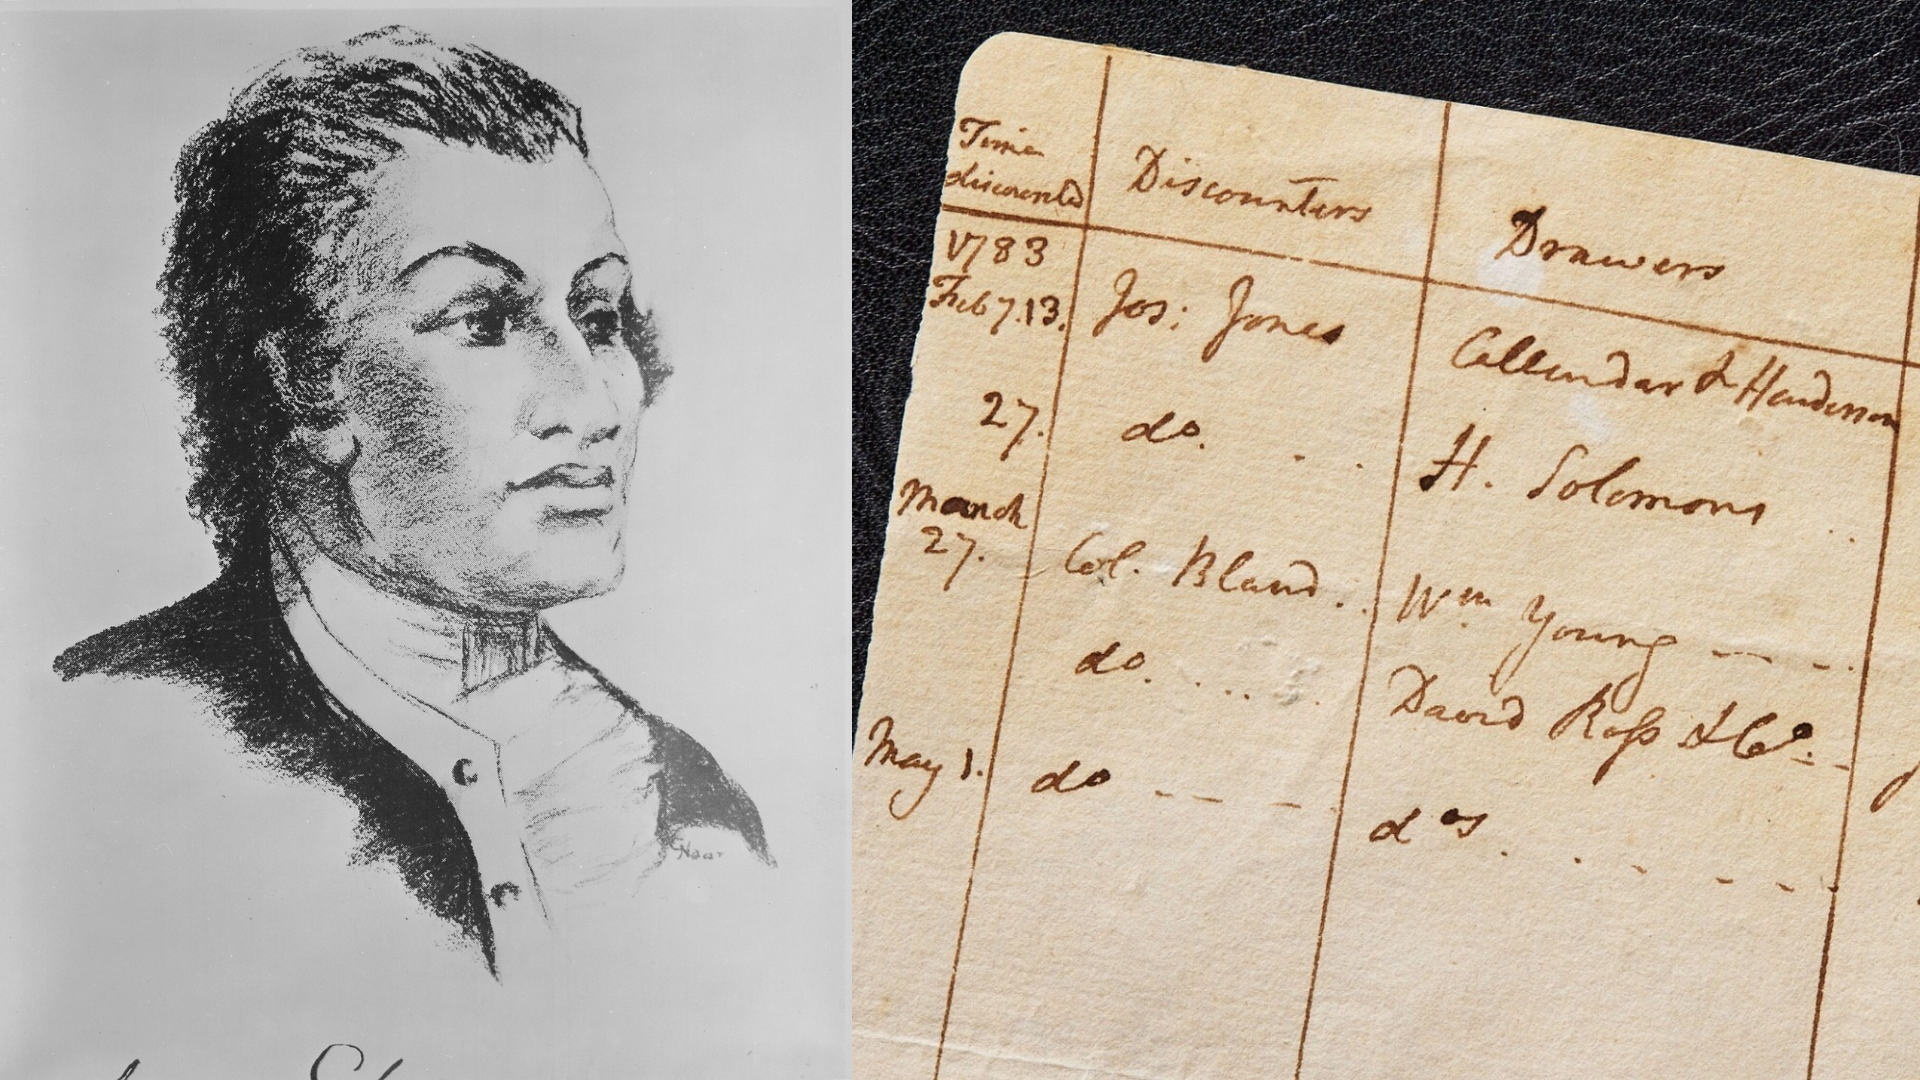 Time
discounted
Discounters
Drawers
1783
Feb7.13.
Jos; Jones
Callendar & Henderson
27.
do.
H. Solomons
March
27.
Col. Bland
Wm Young
do.
David Ross & Co.
May 1.
do
dos.